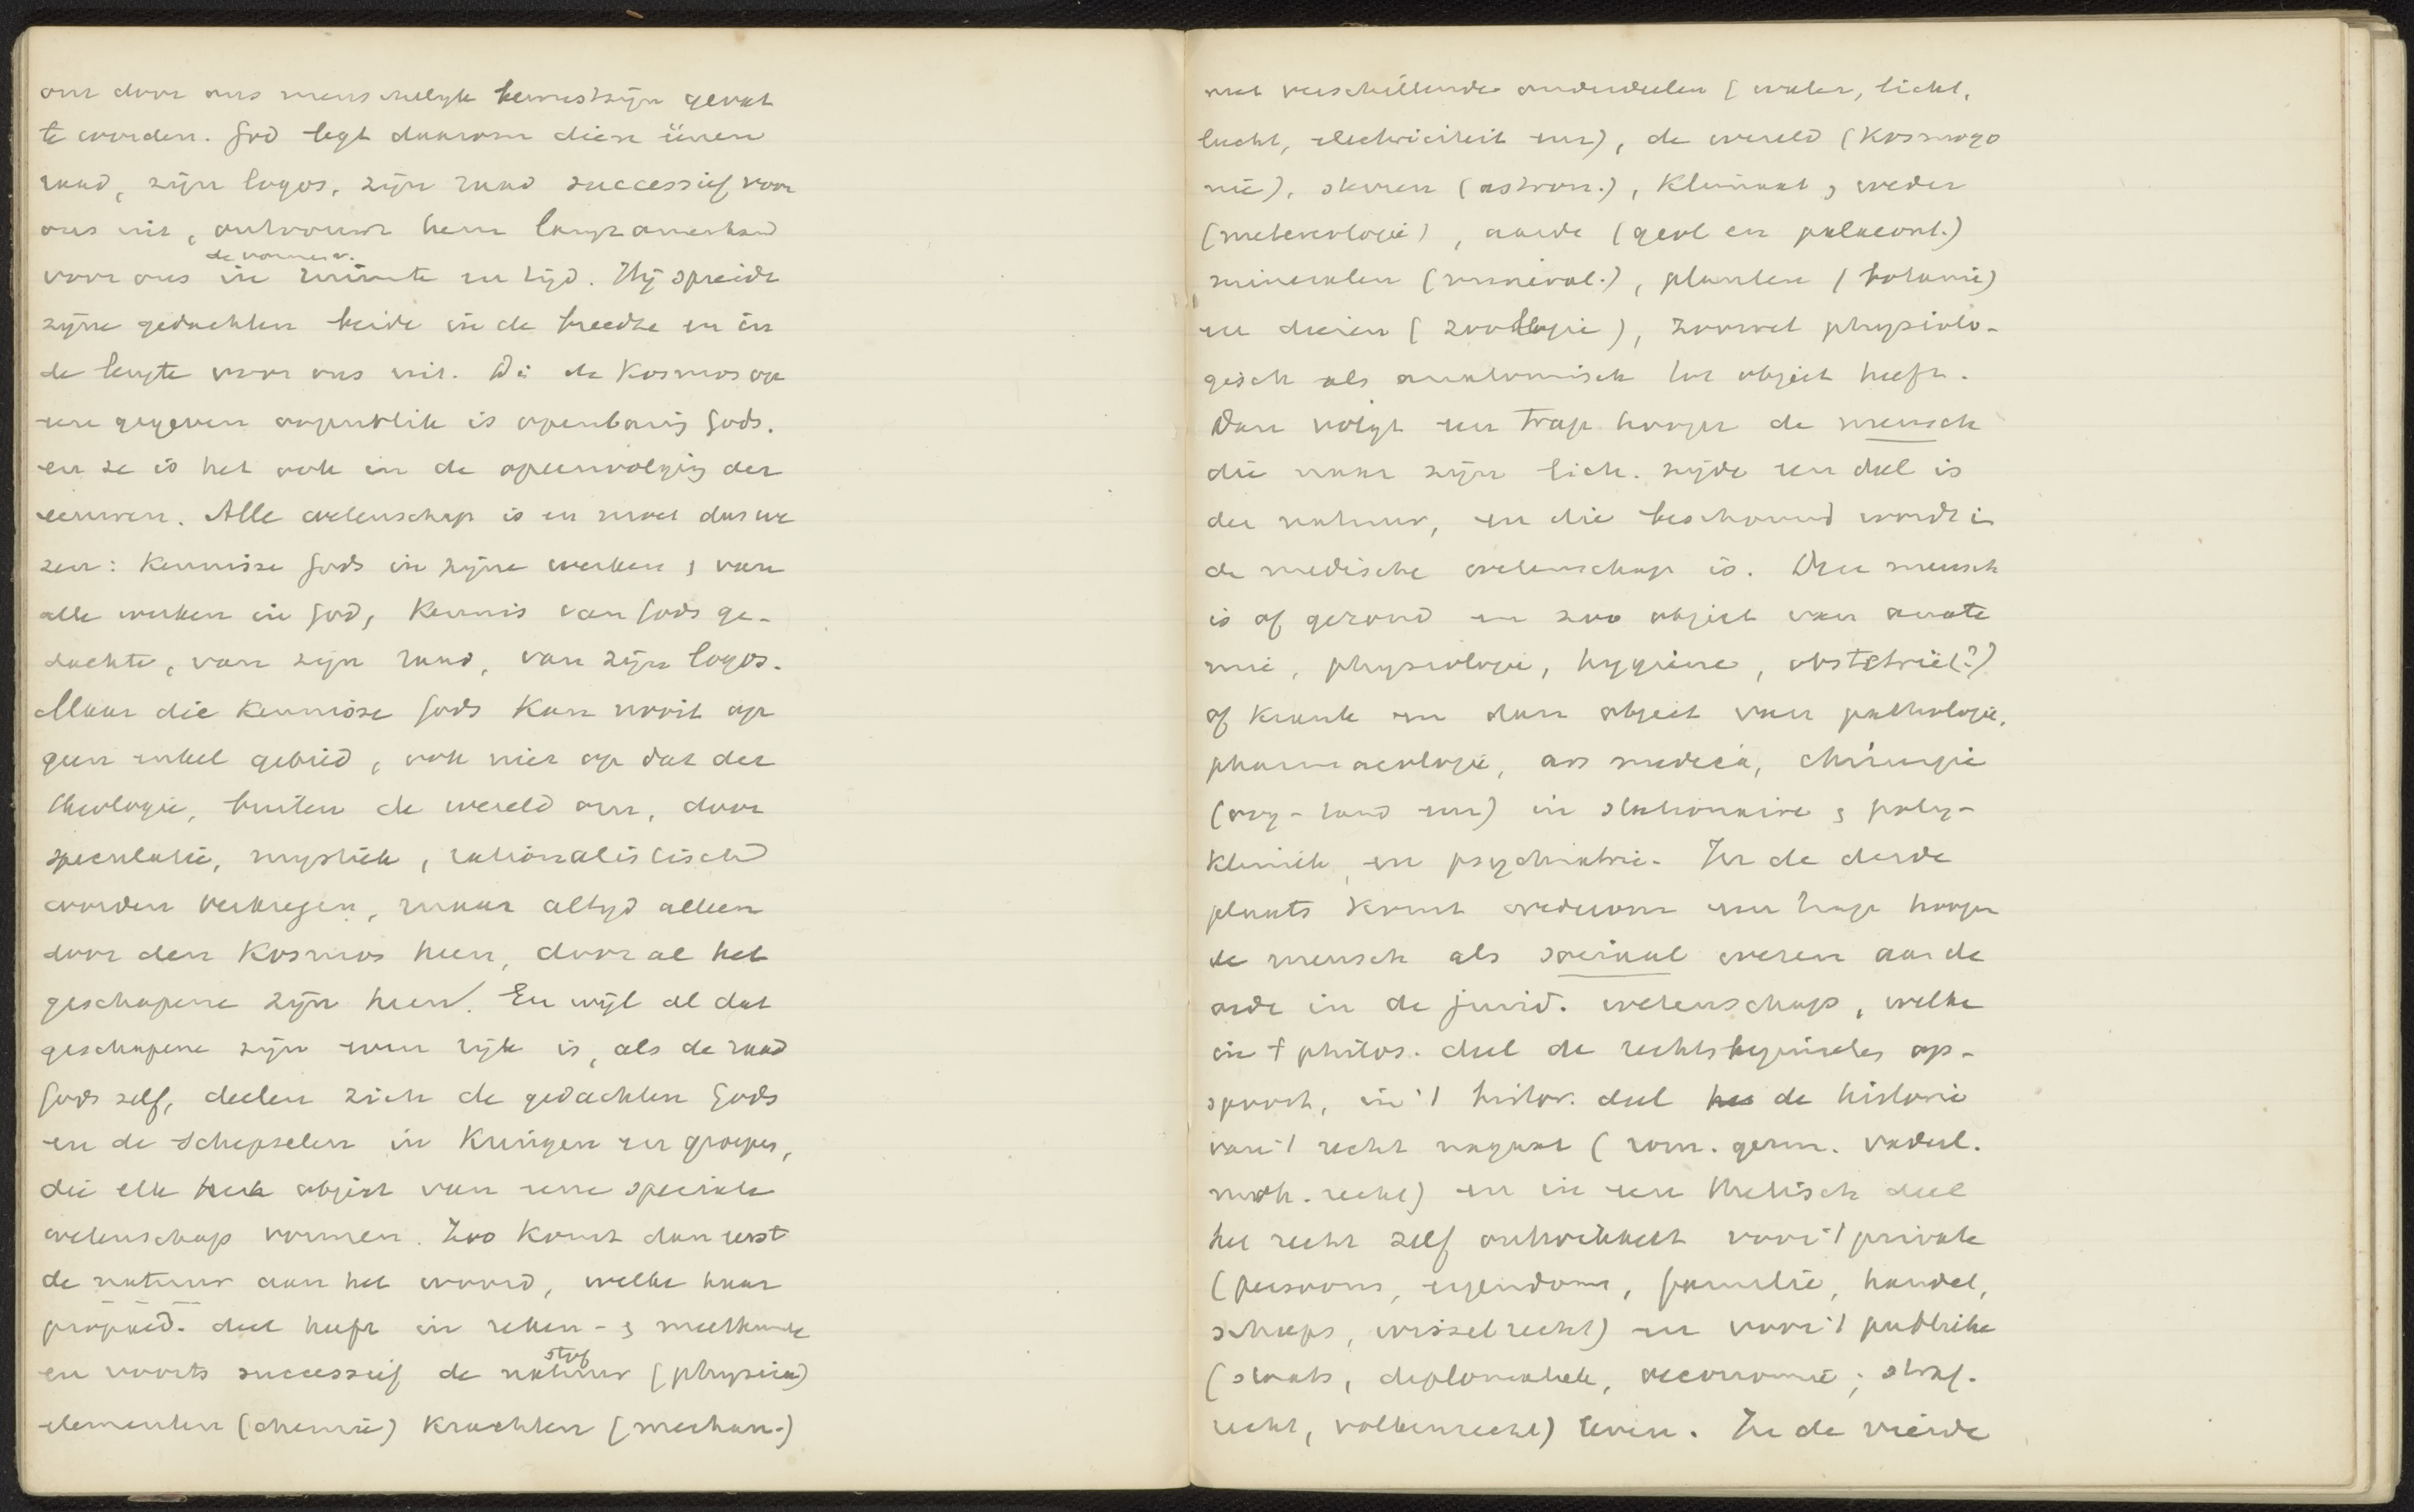 om door ons menschelijk bewustzijn gevat
te worden. God legt daarom dien éénen
raad, zijn logos, zijn raad successief voor
ons uit, ontvouwt hem langzamerhand
de vormen v.
voor ons in ruimte en tijd. Hij spreidt
zijne gedachten beide in de breedte en in
de lengte voor ons uit. De Kosmos op
een gegeven oogenblik is openbaring Gods.
en ze is het ook in de opeenvolging der
eeuwen. Alle wetenschap is en moet dus we
zen: Kennisse Gods in zijne werken, van
alle werken in God, Kennis van Gods ge-
dachte, van zijn raad, van zijn logos.
Maar die Kennisse Gods kan nooit op
geen enkel gebied, ook niet op dat der
theologie, buiten de wereld om, door
speculatie, mystiek, rationalistisch
worden verkregen, maar altijd alleen
door den Kosmos heen, door al het
geschapene zijn heen. En wijl al dat
geschapene zijn even rijk is, als de raad
Gods zelf, deelen zich de gedachten Gods
en de schepselen in Kringen en groepen,
die elk object van eene speciale
wetenschap vormen. Zoo komt dan eerst
de natuur aan het woord, welke haar
propaed. deel heeft in reken- & meetkunde
stof
en voorts successief de natuur (physica)
elementen (chemie) Krachten (mechan.)
met verschillende onderdeelen (water, licht,
lucht, electriciteit enz), de wereld (Kosmogo
nie), sterren (astron.), Klimaat, weder
(metereologie), aarde (geol en palaeont.)
mineralen (mineral.), planten (botanie)
en dieren (zoologie), zoowel physiolo-
gisch als anatomisch tot object heeft.
Dan volgt een trap hooger de mensch
die naar zijn lich. zijde een deel is
der natuur, en die beschouwd wordt in
de medische wetenschap is. Deze mensch
is of gezond en zoo object van anato
mie, physiologie, hygiene, obstetrie(?)
of krank en dan object van pathologie,
pharmacologie, ars medica, chirurgie
(oog- tand enz) in stationaire & poly-
kliniek, en psychiatrie. In de derde
plaats komt wederom een trap hooger
de mensch als sociaal wezen aan de
orde in de jurid. wetenschap, welke
in 't philos. deel de rechtsbeginselen op-
spoort, in 't histor. deel de historie
van 't recht nagaat (rom. germ. vaderl.
moh. recht) en in een thetisch deel
het recht zelf ontwikkelt voor 't private
(persoons, eigendoms, familie, handel,
scheeps, wisselrecht) en voor 't publieke
(staats, diplomatiek, oeconomie; straf-
recht, volkenrecht) leven. In de vierde